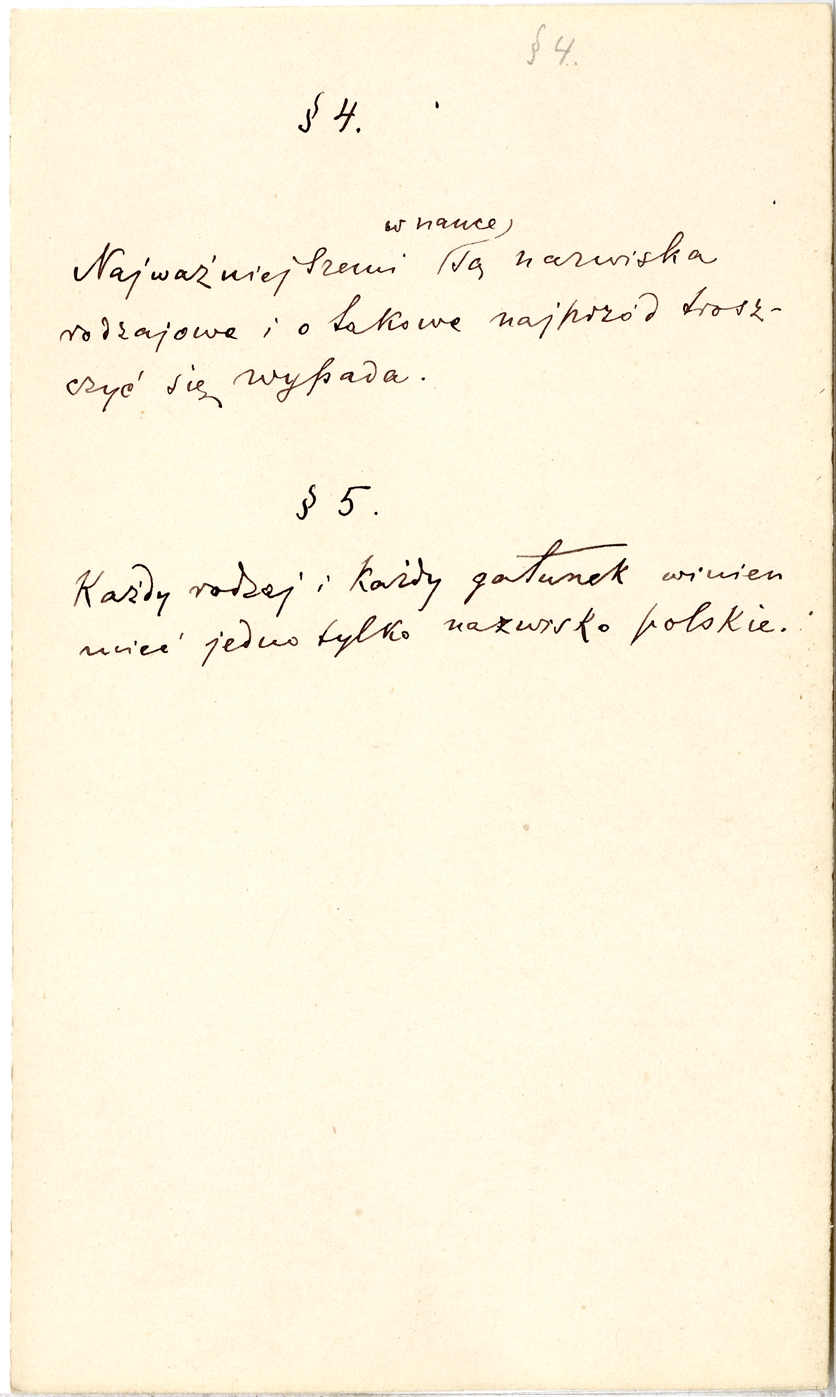 § 4.
§ 4.
w nauce
Najważniejszemi są nazwiska
rodzajowe i o takowe najprzód trosz-
czyć się wypada.
§ 5.
Każdy rodzaj i każdy gatunek winien
mieć jedno tylko nazwisko polskie.